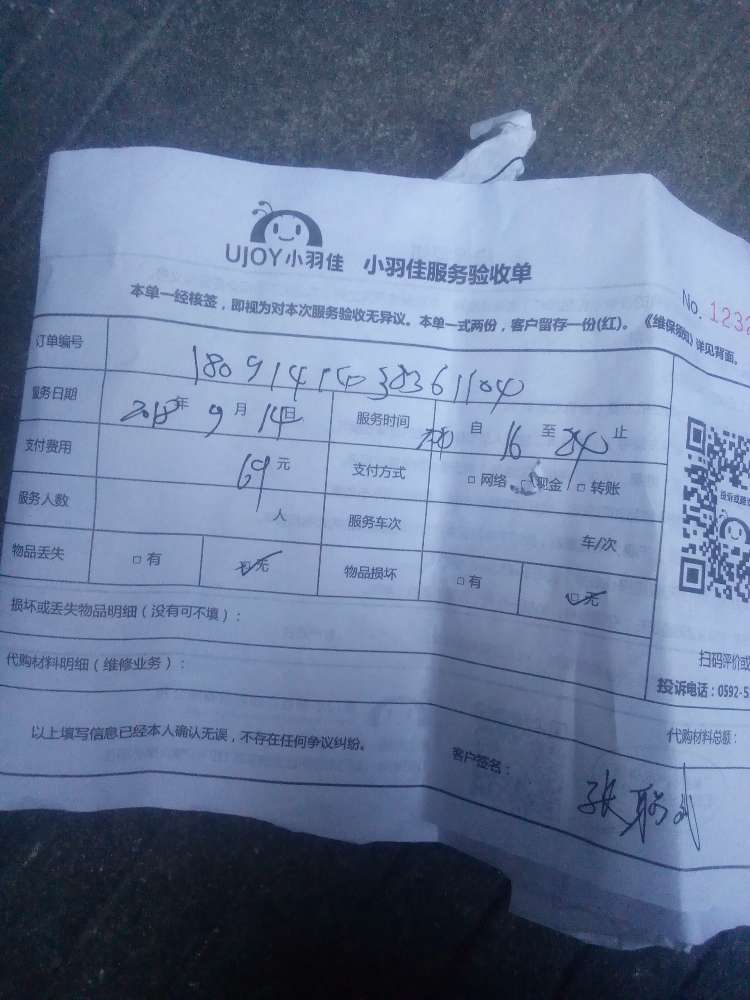 UJOY小羽佳 小羽佳服务验收单
No. 1232
本单一经核签,即视为对本次服务验收无异议。本单一式两份,客户留存一份(红)。《维保须知》详见背面。
订单编号
服务日期 2018年 9月 14日 服务时间 自 16 至 止
支付费用 69元 支付方式 □网络 □现金 □转账
服务人数 人 服务车次 车/次
物品丢失 □有 □无 物品损坏 □有 □无
损坏或丢失物品明细(没有可不填):
代购材料明细(维修业务):
扫码评价或
投诉电话:0592-5
代购材料总额:
以上填写信息已经本人确认无误,不存在任何争议纠纷。 客户签名: